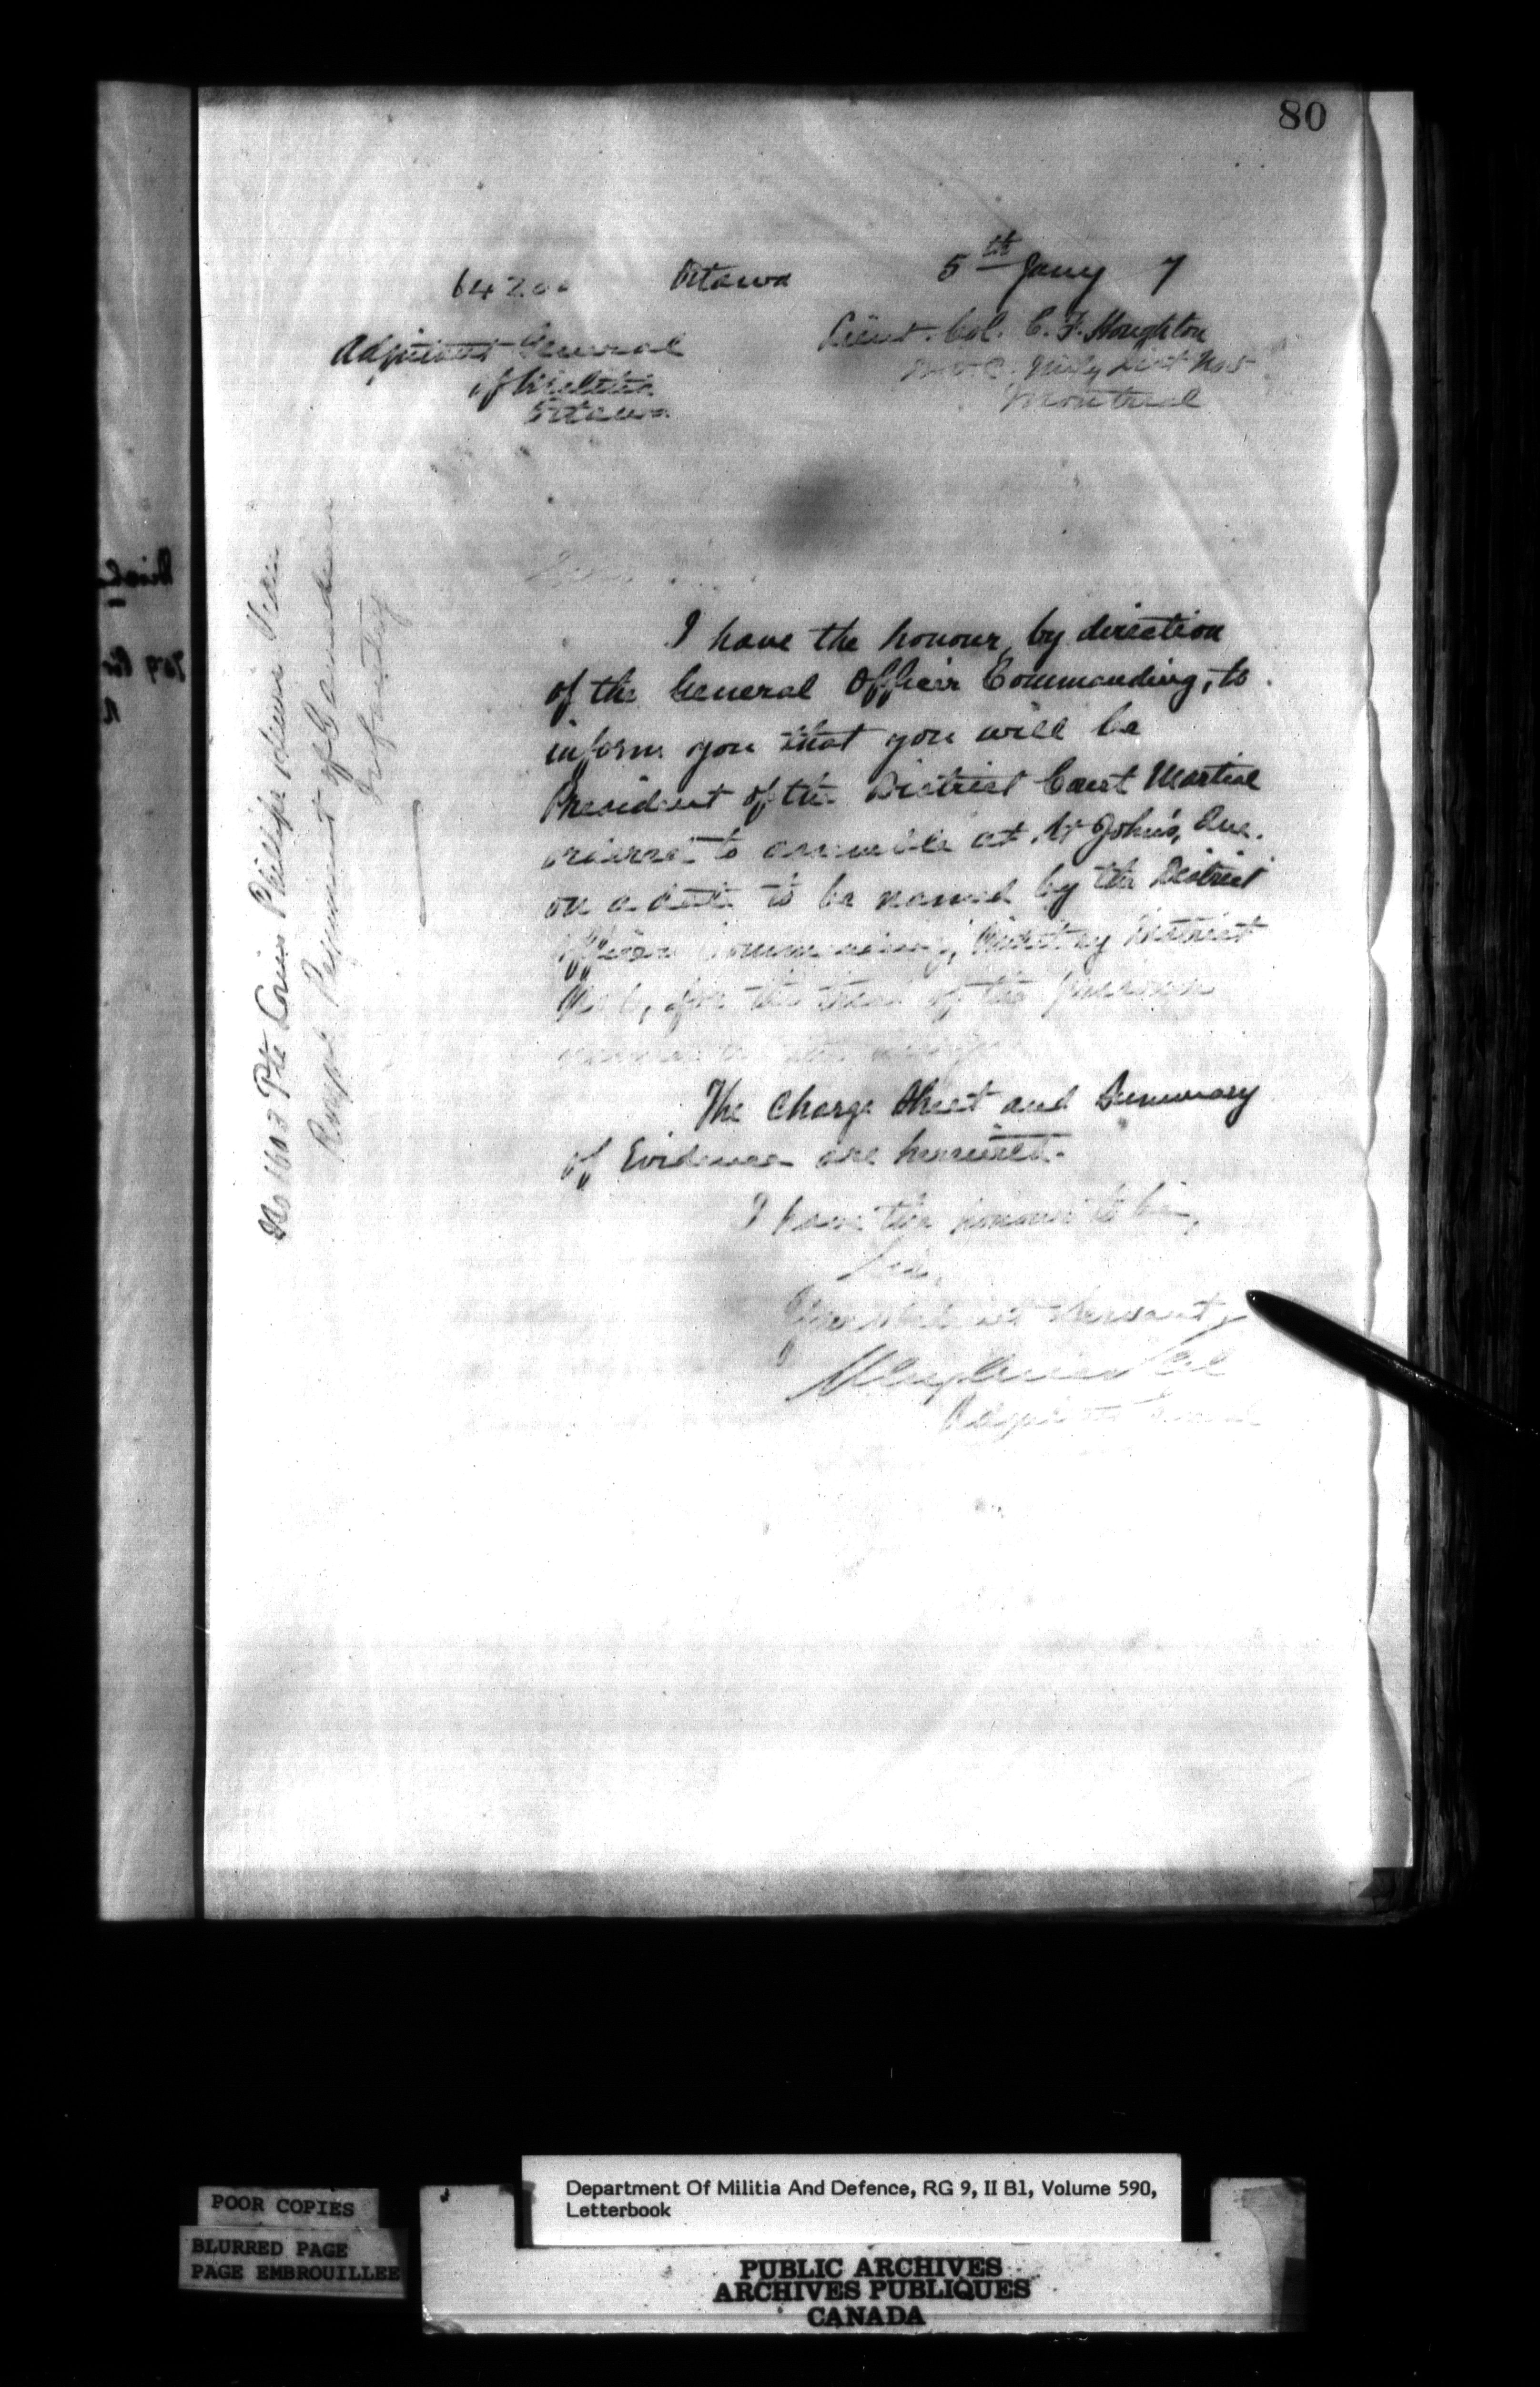 80
5th Jany 7
Ottawa
Adjutant General
of Militia
Ottawa
Lieut. Col. C. F. Houghton
D.A.G. Mily Dist No 5
Montreal
I have the honour, by direction
of the General Officer Commanding, to
inform you that you will be
President of the District Court Martial
ordered to assemble at St John's, Que.
on a date to be named by the District
Officer Commanding, Military District
No 6, for the trial of the prisoner
named in the margin
The Charge Sheet and Summary
of Evidence are herewith.
I have the honour to be,
Sir,
Your obedient Servant,
Col
Adjutant General
No 1603 Pte Louis Philippe
Royal Regiment of Canadian
Infantry
POOR COPIES
BLURRED PAGE
PAGE EMBROUILLEE
Department Of Militia And Defence, RG 9, II B1, Volume 590,
Letterbook
PUBLIC ARCHIVES
ARCHIVES PUBLIQUES
CANADA